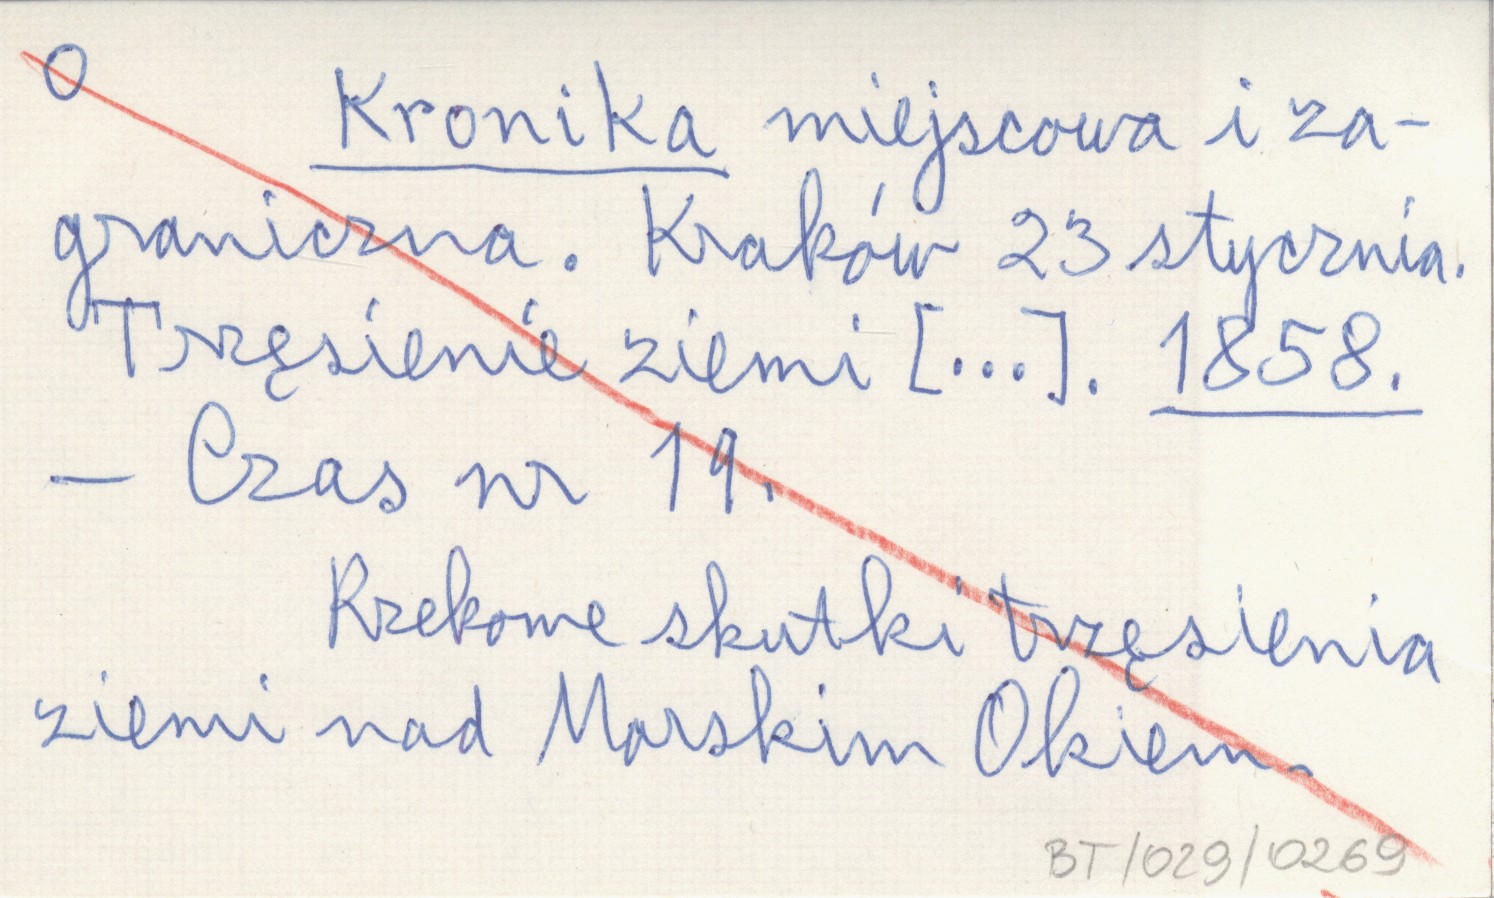 O Kronika miejscowa i za-
graniczna. Kraków 23 stycznia.
Trzęsienie ziemi [...]. 1858.
— Czas nr 19.
Rzekome skutki trzęsienia
ziemi nad Morskim Okiem.
BT/029/0269